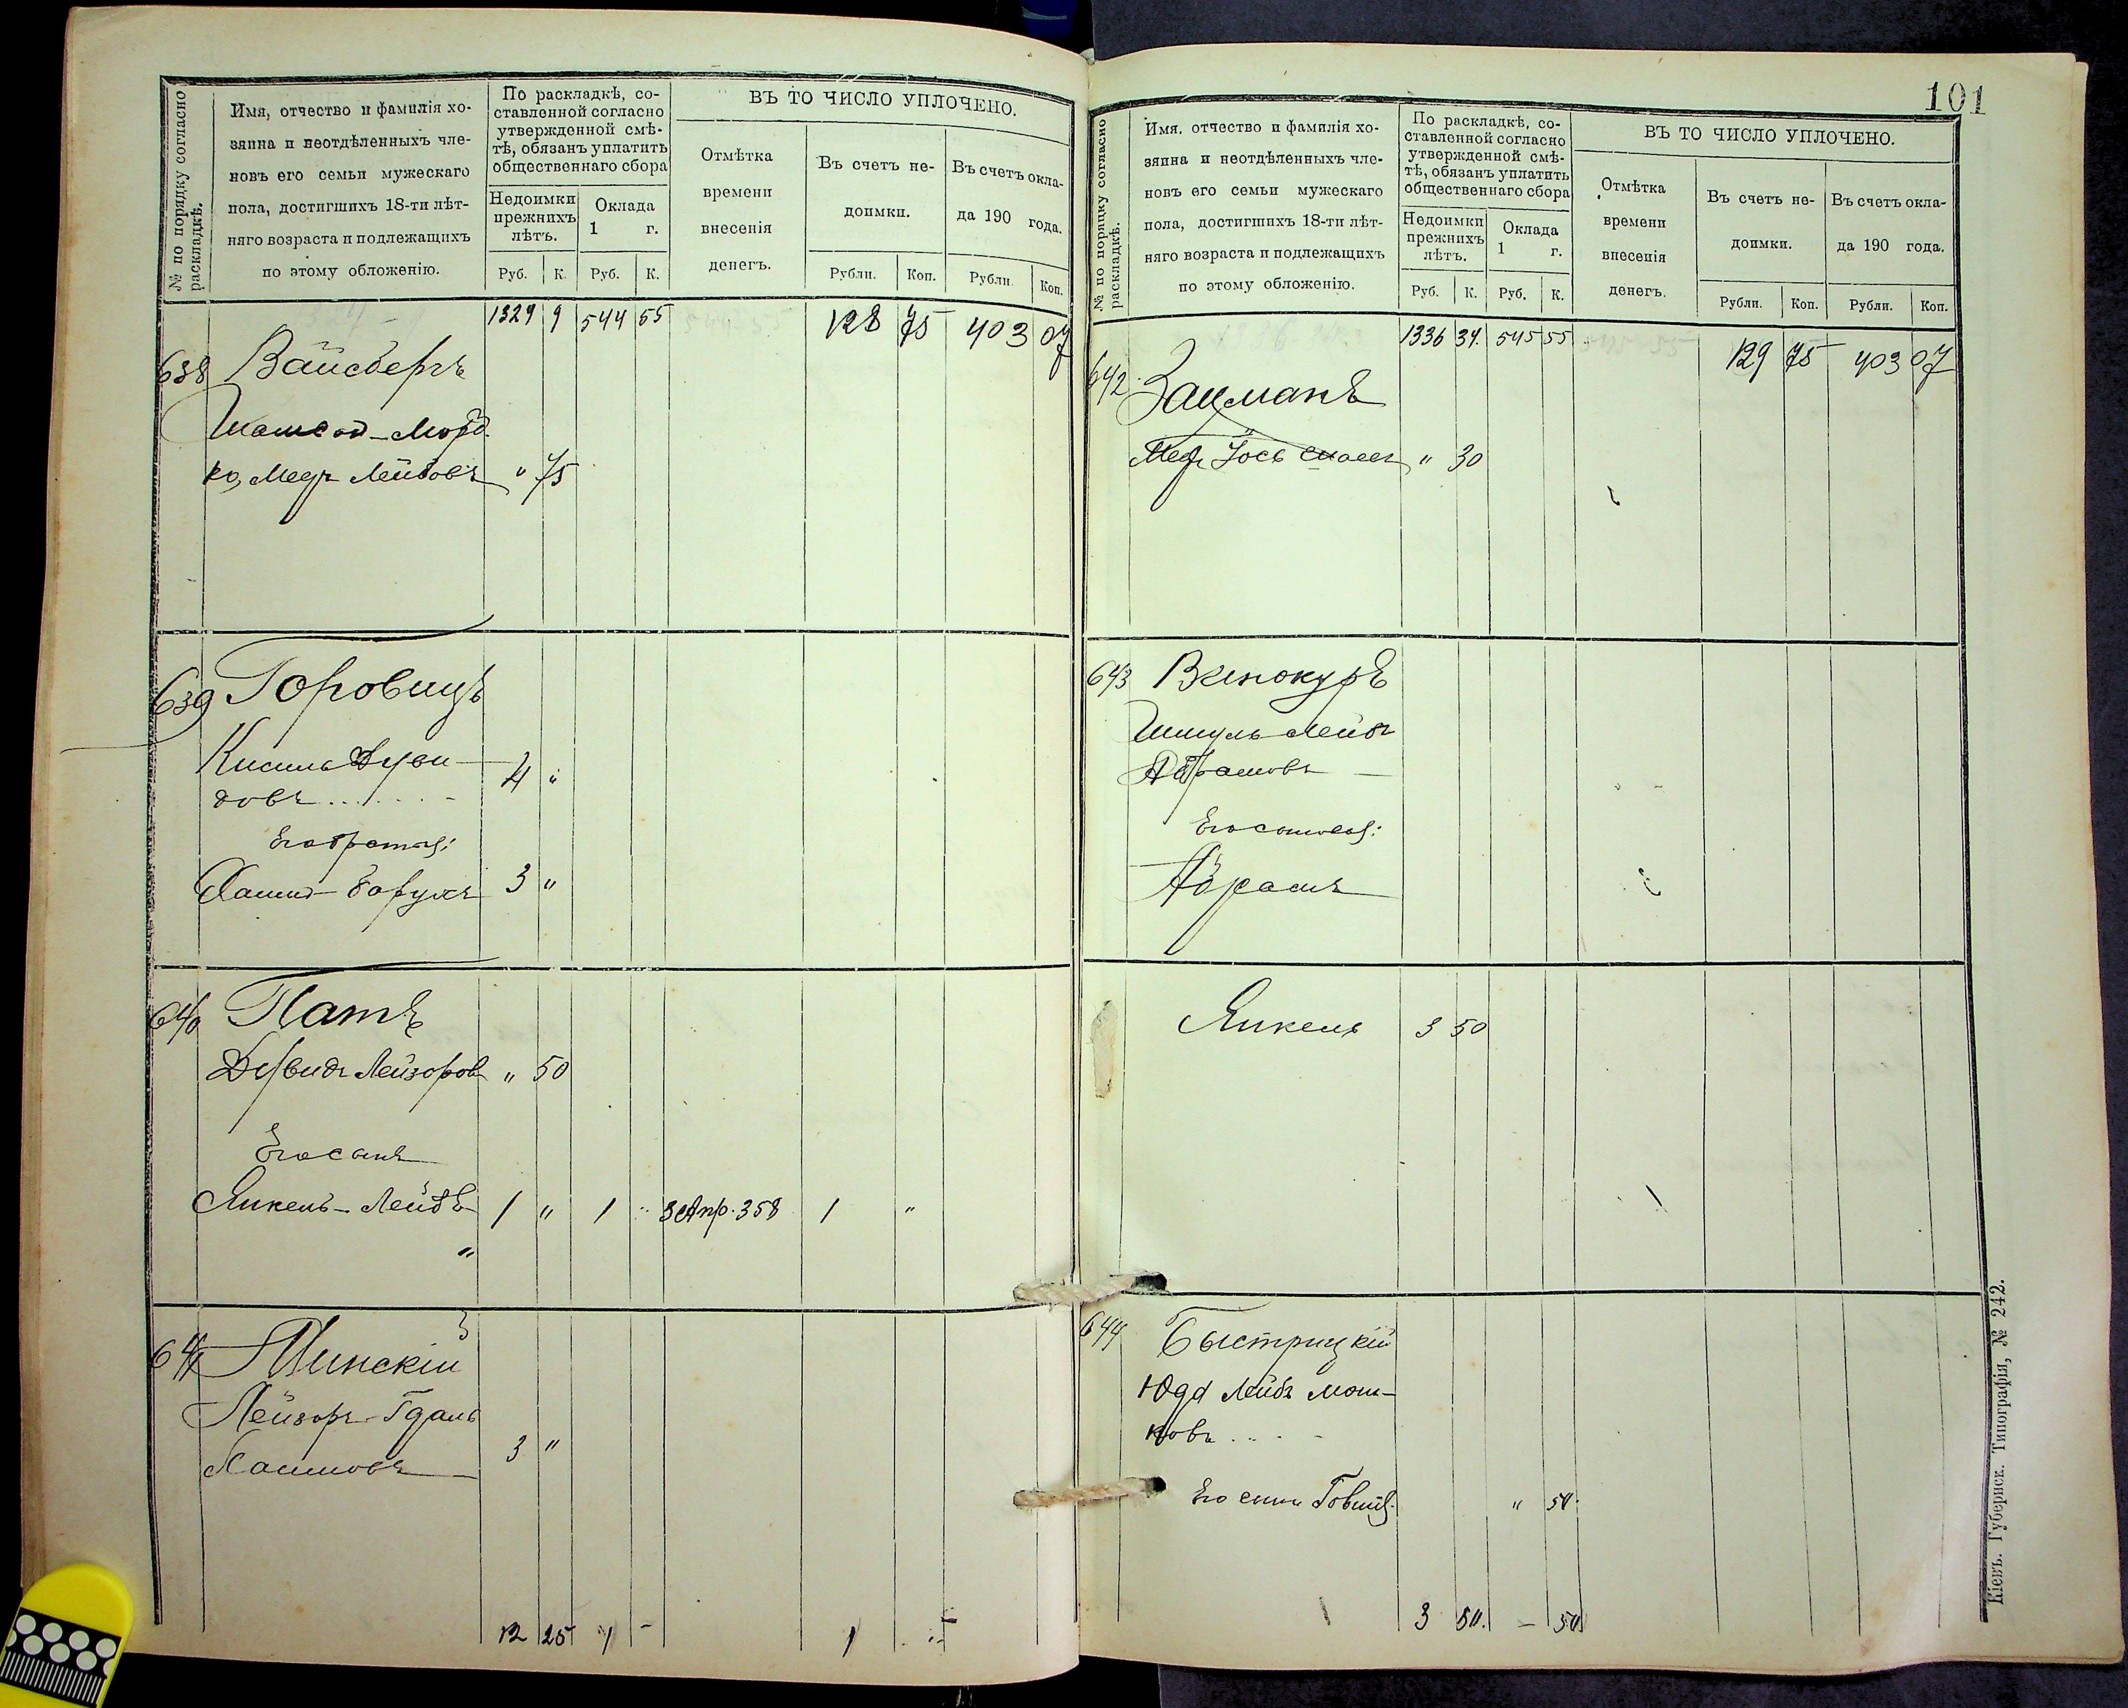 № по порядку согласно раскладкѣ.
Имя, отчество и фамилія хо-
зяина и неотдѣленныхъ чле-
новъ его семьи мужескаго
пола, достигшихъ 18-ти лѣт-
няго возраста и подлежащихъ
по этому обложенію.
По раскладкѣ, со-
ставленной согласно
утвержденной смѣ-
тѣ, обязанъ уплатить
общественнаго сбора
Недоимки
прежнихъ
лѣтъ.
Оклада
1 г.
Руб. К. Руб. К.
ВЪ ТО ЧИСЛО УПЛОЧЕНО.
Отмѣтка
времени
внесенія
денегъ.
Въ счетъ не-
доимки.
Въ счетъ окла-
да 190 года.
Рубли. Коп. Рубли. Коп.
1329 9 544 55 128 75 403 07
638 Вайсбергъ
Морд-
ко, Меер Лейбовъ " 75
639 Горовицъ
Кисиль Дуви-
довъ 4 "
Его братья:
Хаимъ-Борухъ 3 "
640 Патъ
Дувидъ Лейзоров " 50
Его сынъ
Янкель-Лейбъ 1 " 1 " 3 Апр. 358 1 "
"
641 Минскій
Лейзоръ-Гдаль
Хаимовъ 3 "
12 25 1 - 1 -
101
№ по порядку согласно раскладкѣ.
Имя. отчество и фамилія хо-
зяина и неотдѣленныхъ чле-
новъ его семьи мужескаго
пола, достигшихъ 18-ти лѣт-
няго возраста и подлежащихъ
по этому обложенію.
По раскладкѣ, со-
ставленной согласно
утвержденной смѣ-
тѣ, обязанъ уплатить
общественнаго сбора
Недоимки
прежнихъ
лѣтъ.
Оклада
1 г.
Руб. К. Руб. К.
ВЪ ТО ЧИСЛО УПЛОЧЕНО.
Отмѣтка
времени
внесенія
денегъ.
Въ счетъ не-
доимки.
Въ счетъ окла-
да 190 года.
Рубли. Коп. Рубли. Коп.
1336 34. 545 55 129 75 403 07
642 Зацманъ
Меер Іось " 30
643 Винокуръ
Шмуль-Лейбъ
Абрамовъ
Его сыновья:
Абрамъ
Янкель 3 50
644 Быстрицкій
Юда Лейбъ Мош-
ковъ
Его сынъ " 50
3 50. - 50
Кіевъ. Губернск. Типографія, № 242.